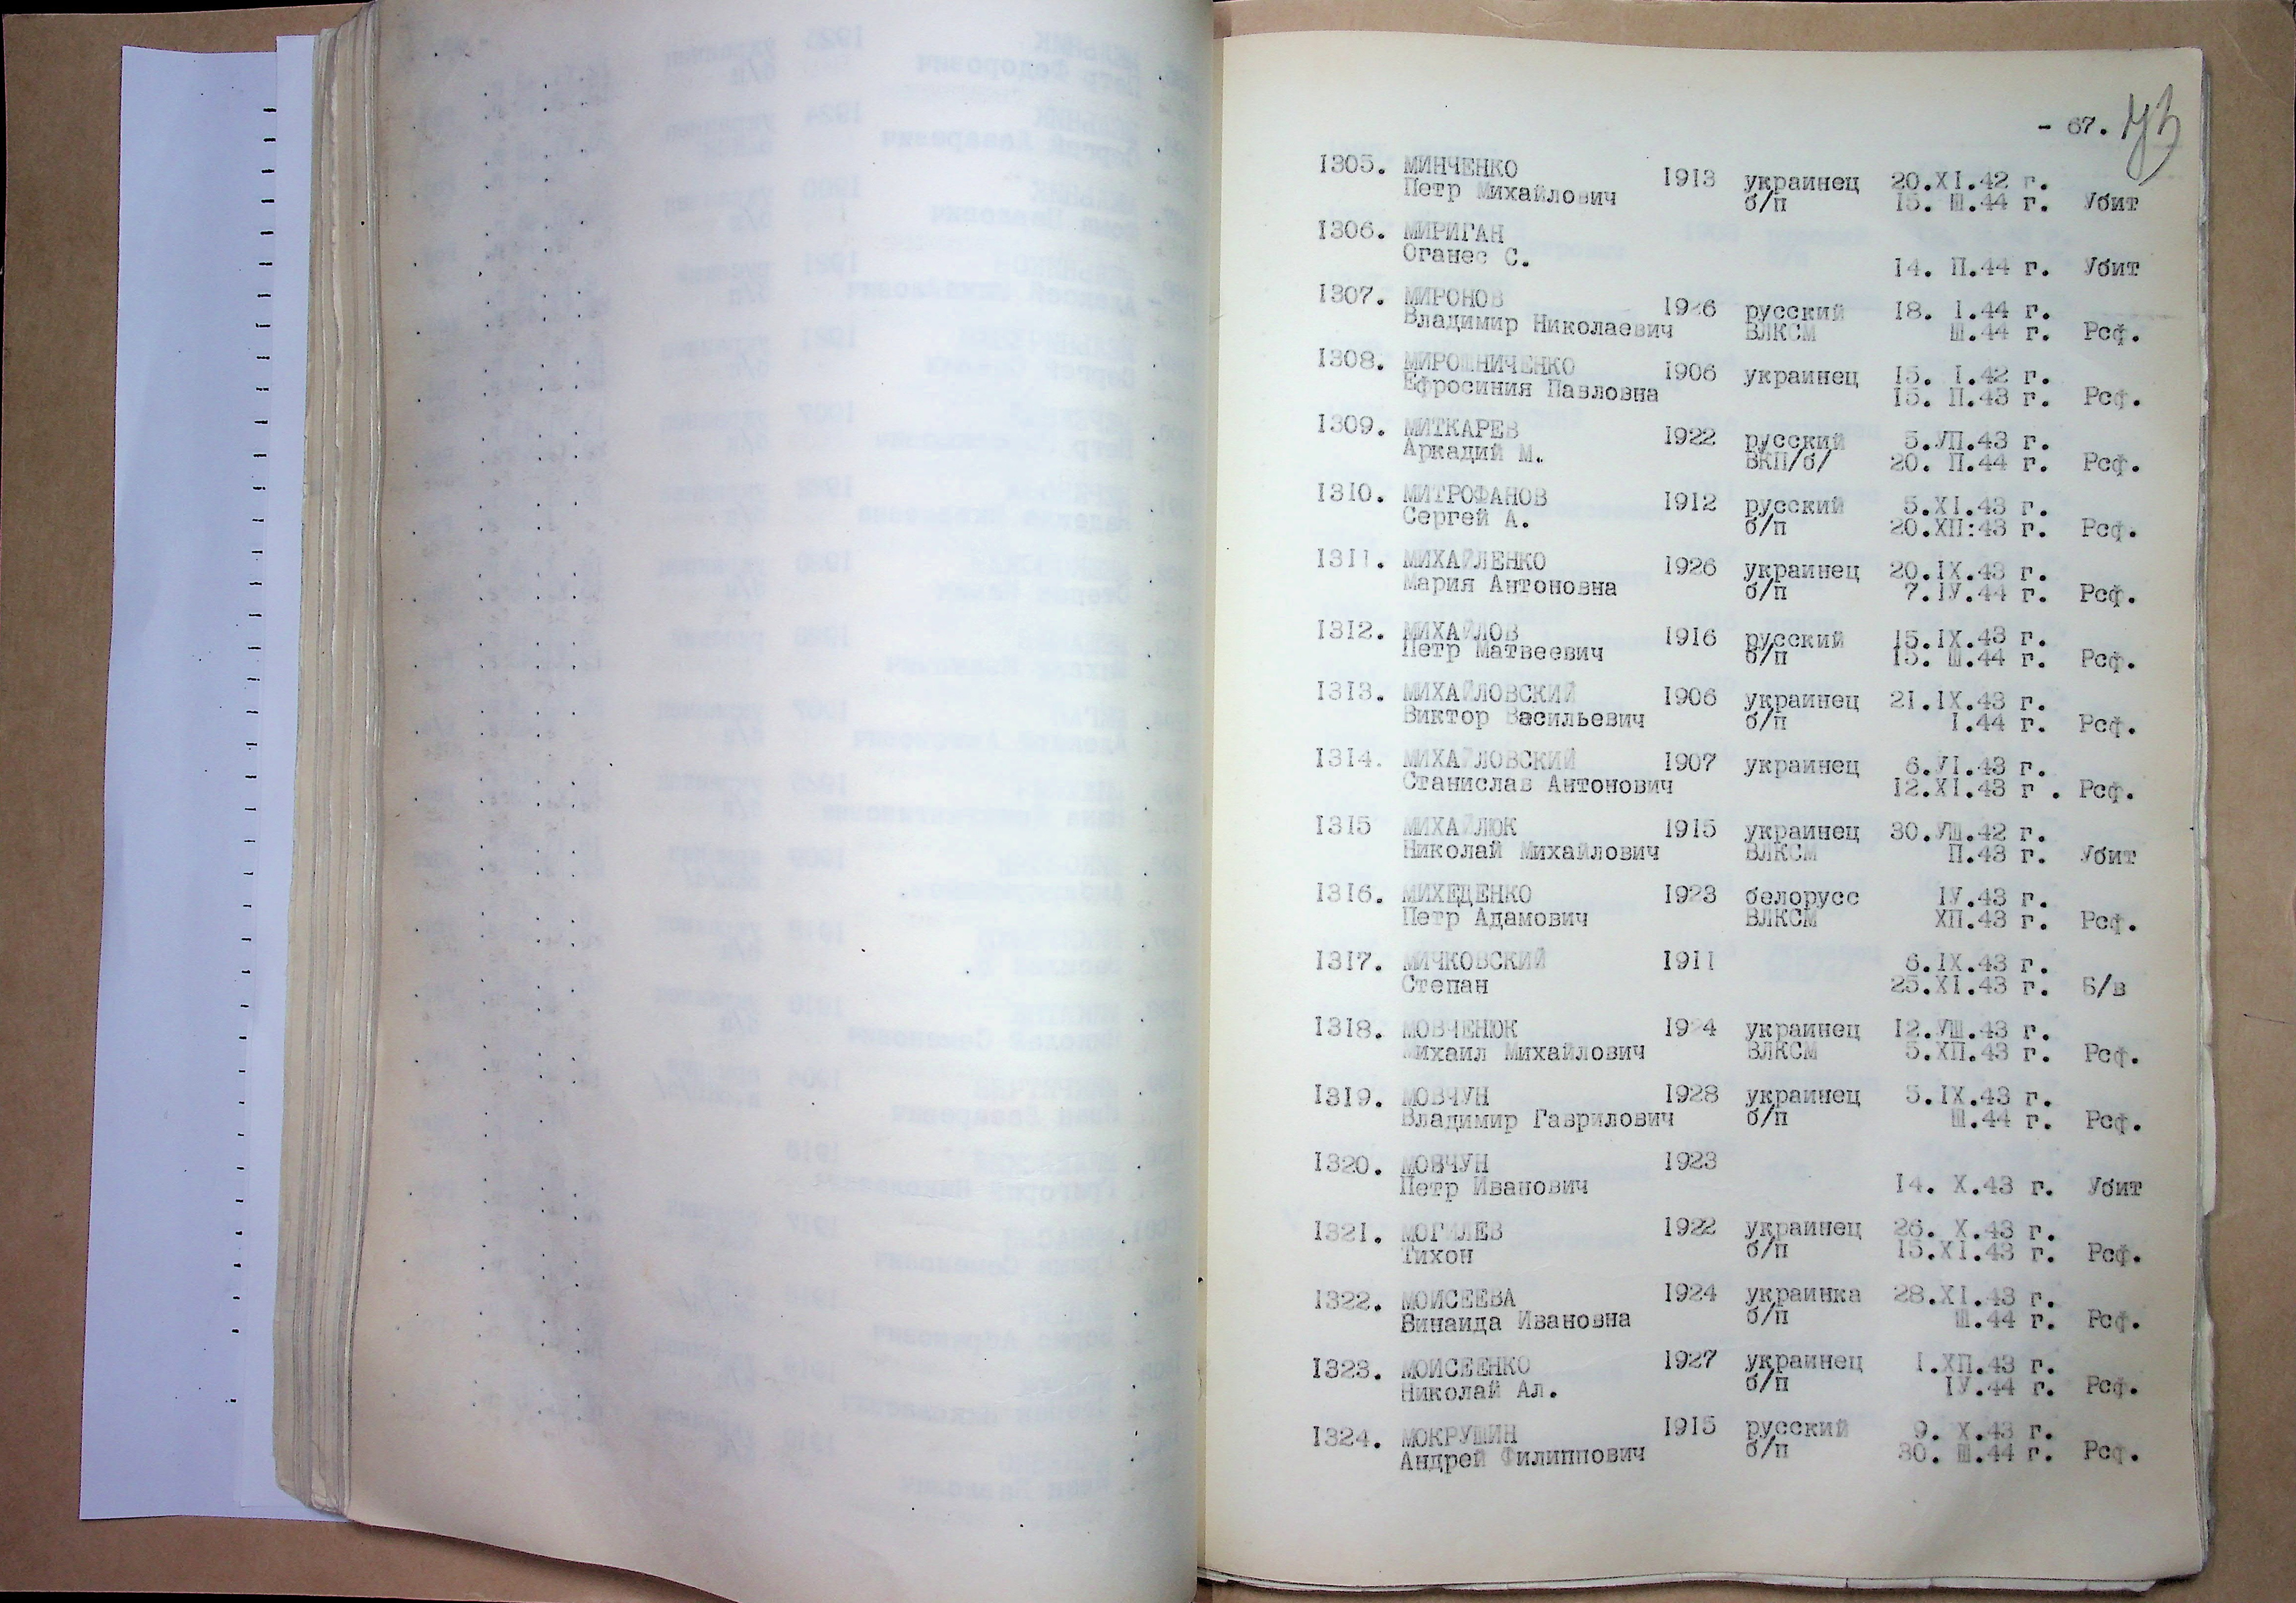 - 67.
1305. МИНЧЕНКО 1913 украинец 20.XI.42 г.
Петр Михайлович б/п 15. Ш.44 г. Убит
1306. МИРИГАН
Оганес С. 14. П.44 г. Убит
1307. МИРОНОВ 1926 русский 18. I.44 г.
Владимир Николаевич ВЛКСМ Ш.44 г. Рсф.
1308. МИРОШНИЧЕНКО 1906 украинец 15. I.42 г.
Ефросиния Павловна 15. П.43 г. Рсф.
1309. МИТКАРЕВ 1922 русский 5.УП.43 г.
Аркадий М. ВКП/б/ 20. П.44 г. Рсф.
1310. МИТРОФАНОВ 1912 русский 5.XI.43 г.
Сергей А. б/п 20.ХП:43 г. Рсф.
1311. МИХАЙЛЕНКО 1926 украинец 20.IX.43 г.
Мария Антоновна б/п 7.IУ.44 г. Рсф.
1312. МИХАЙЛОВ 1916 русский 15.IX.43 г.
Петр Матвеевич б/п 15. Ш.44 г. Рсф.
1313. МИХАЙЛОВСКИЙ 1906 украинец 21.IX.43 г.
Виктор Васильевич б/п I.44 г. Рсф.
1314. МИХАЙЛОВСКИЙ 1907 украинец 6.УI.43 г.
Станислав Антонович 12.XI.43 г . Рсф.
1315 МИХАЙЛЮК 1915 украинец 30.УШ.42 г.
Николай Михайлович ВЛКСМ П.43 г. Убит
1316. МИХЕДЕНКО 1923 белорусс IУ.43 г.
Петр Адамович ВЛКСМ ХП.43 г. Рсф.
1317. МИЧКОВСКИЙ 1911 6.IX.43 г.
Степан 25.XI.43 г. Б/в
1318. МОВЧЕНЮК 1924 украинец 12.УШ.43 г.
Михаил Михайлович ВЛКСМ 5.ХП.43 г. Рсф.
1319. МОВЧУН 1928 украинец 5.IX.43 г.
Владимир Гаврилович б/п Ш.44 г. Рсф.
1320. МОВЧУН 1923
Петр Иванович 14. X.43 г. Убит
1321. МОГИЛЕВ 1922 украинец 26. X.43 г.
Тихон б/п 15.XI.43 г. Рсф.
1322. МОИСЕЕВА 1924 украинка 28.XI.43 г.
Зинаида Ивановна б/п Ш.44 г. Рсф.
1323. МОИСЕЕНКО 1927 украинец 1.ХП.43 г.
Николай Ал. б/п IУ.44 г. Рсф.
1324. МОКРУШИН 1915 русский 9. X.43 г.
Андрей Филиппович б/п 30. Ш.44 г. Рсф.